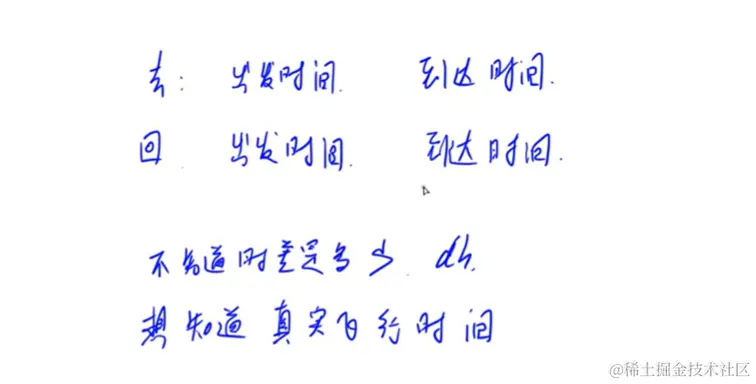 去: 出发时间. 到达时间.
回 出发时间. 到达时间.
不知道时差是多少 dh.
想知道真实飞行时间
@稀土掘金技术社区